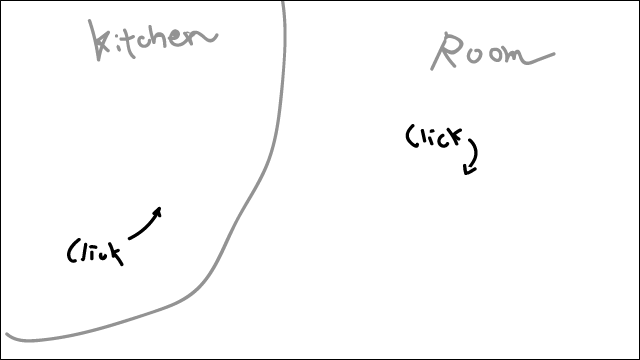 Kitchen
Room
Click
Click